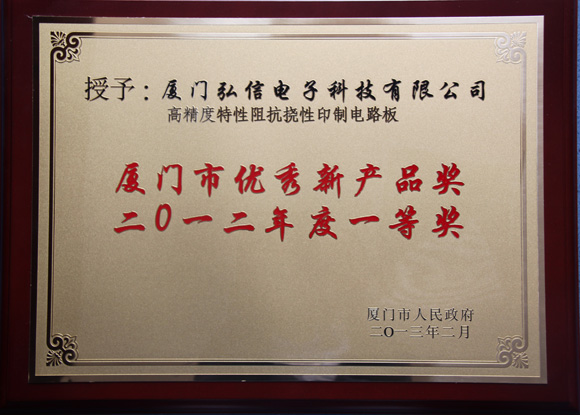 授予：厦门弘信电子科技有限公司
高精度特性阻抗挠性印制电路板
厦门市优秀新产品奖
二〇一二年度一等奖
厦门市人民政府
二〇一三年二月